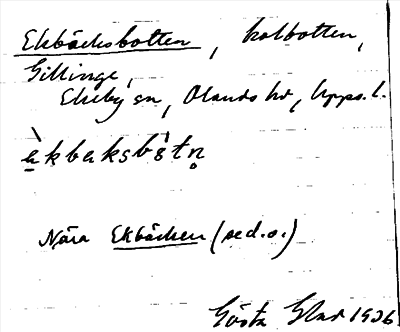 Ekbäcksbotten, kolbotten,
Gillinge,
Ekeby sn, Olands hd, Upps. l.
èkbaksbòtn̥
Nära Ekbäcken (se d.o.)
Gösta 1926